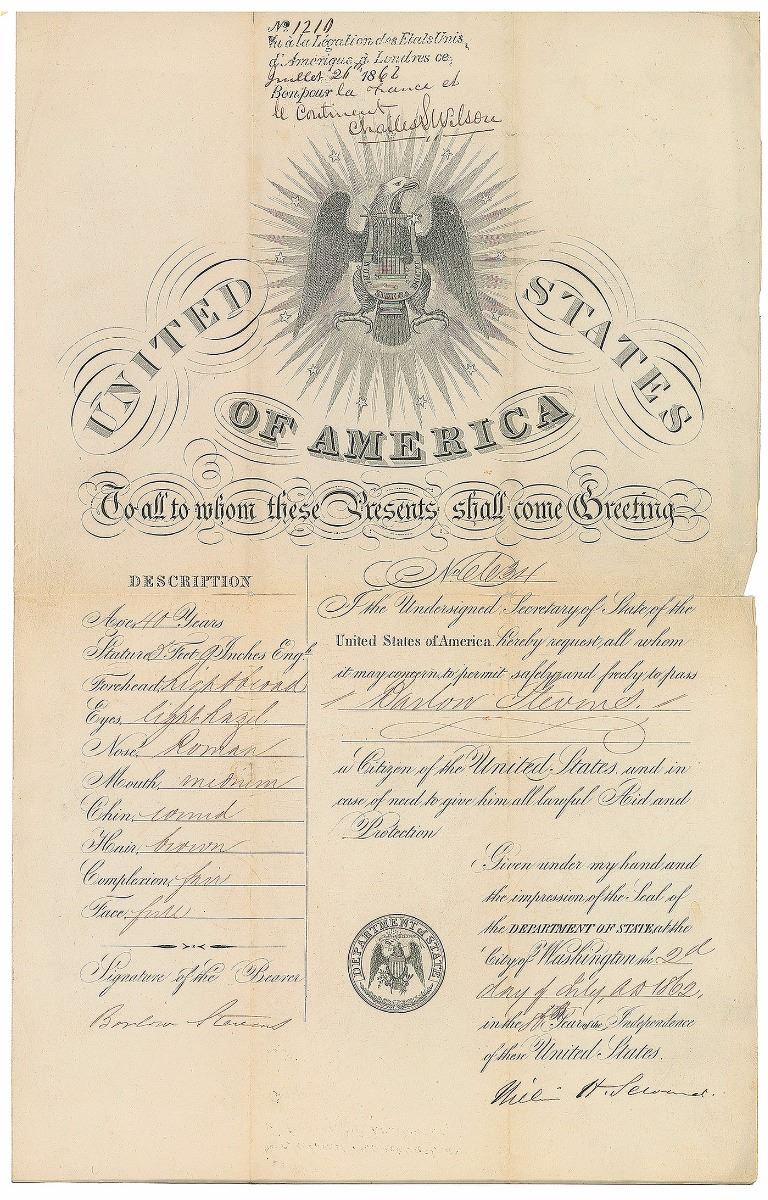 No. 1210
Vu à la Légation des Etats Unis
d'Amérique à Londres ce
Juillet 26 1862
Bon pour la France et
le Continent
Charles L Wilson
UNITED STATES
OF AMERICA
To all to whom these Presents shall come Greeting
DESCRIPTION
Age, 40 Years
Stature, 5 Feet 9 Inches Engh.
Forehead, high broad
Eyes, light hazel
Nose, Roman
Mouth, medium
Chin, round
Hair, brown
Complexion, fair
Face, full
Signature of the Bearer
Barlow Stevens
No.
I the Undersigned Secretary of State of the
United States of America, hereby request all whom
it may concern to permit safely and freely to pass
Barlow Stevens.
a Citizen of the United States, and in
case of need to give him all lawful Aid and
Protection
Given under my hand and
the impression of the Seal of
the DEPARTMENT OF STATE, at the
City of Washington the 2d
day of July AD 1862,
in the Year of the Independence
of these United States.
William H. Seward.
DEPARTMENT OF STATE